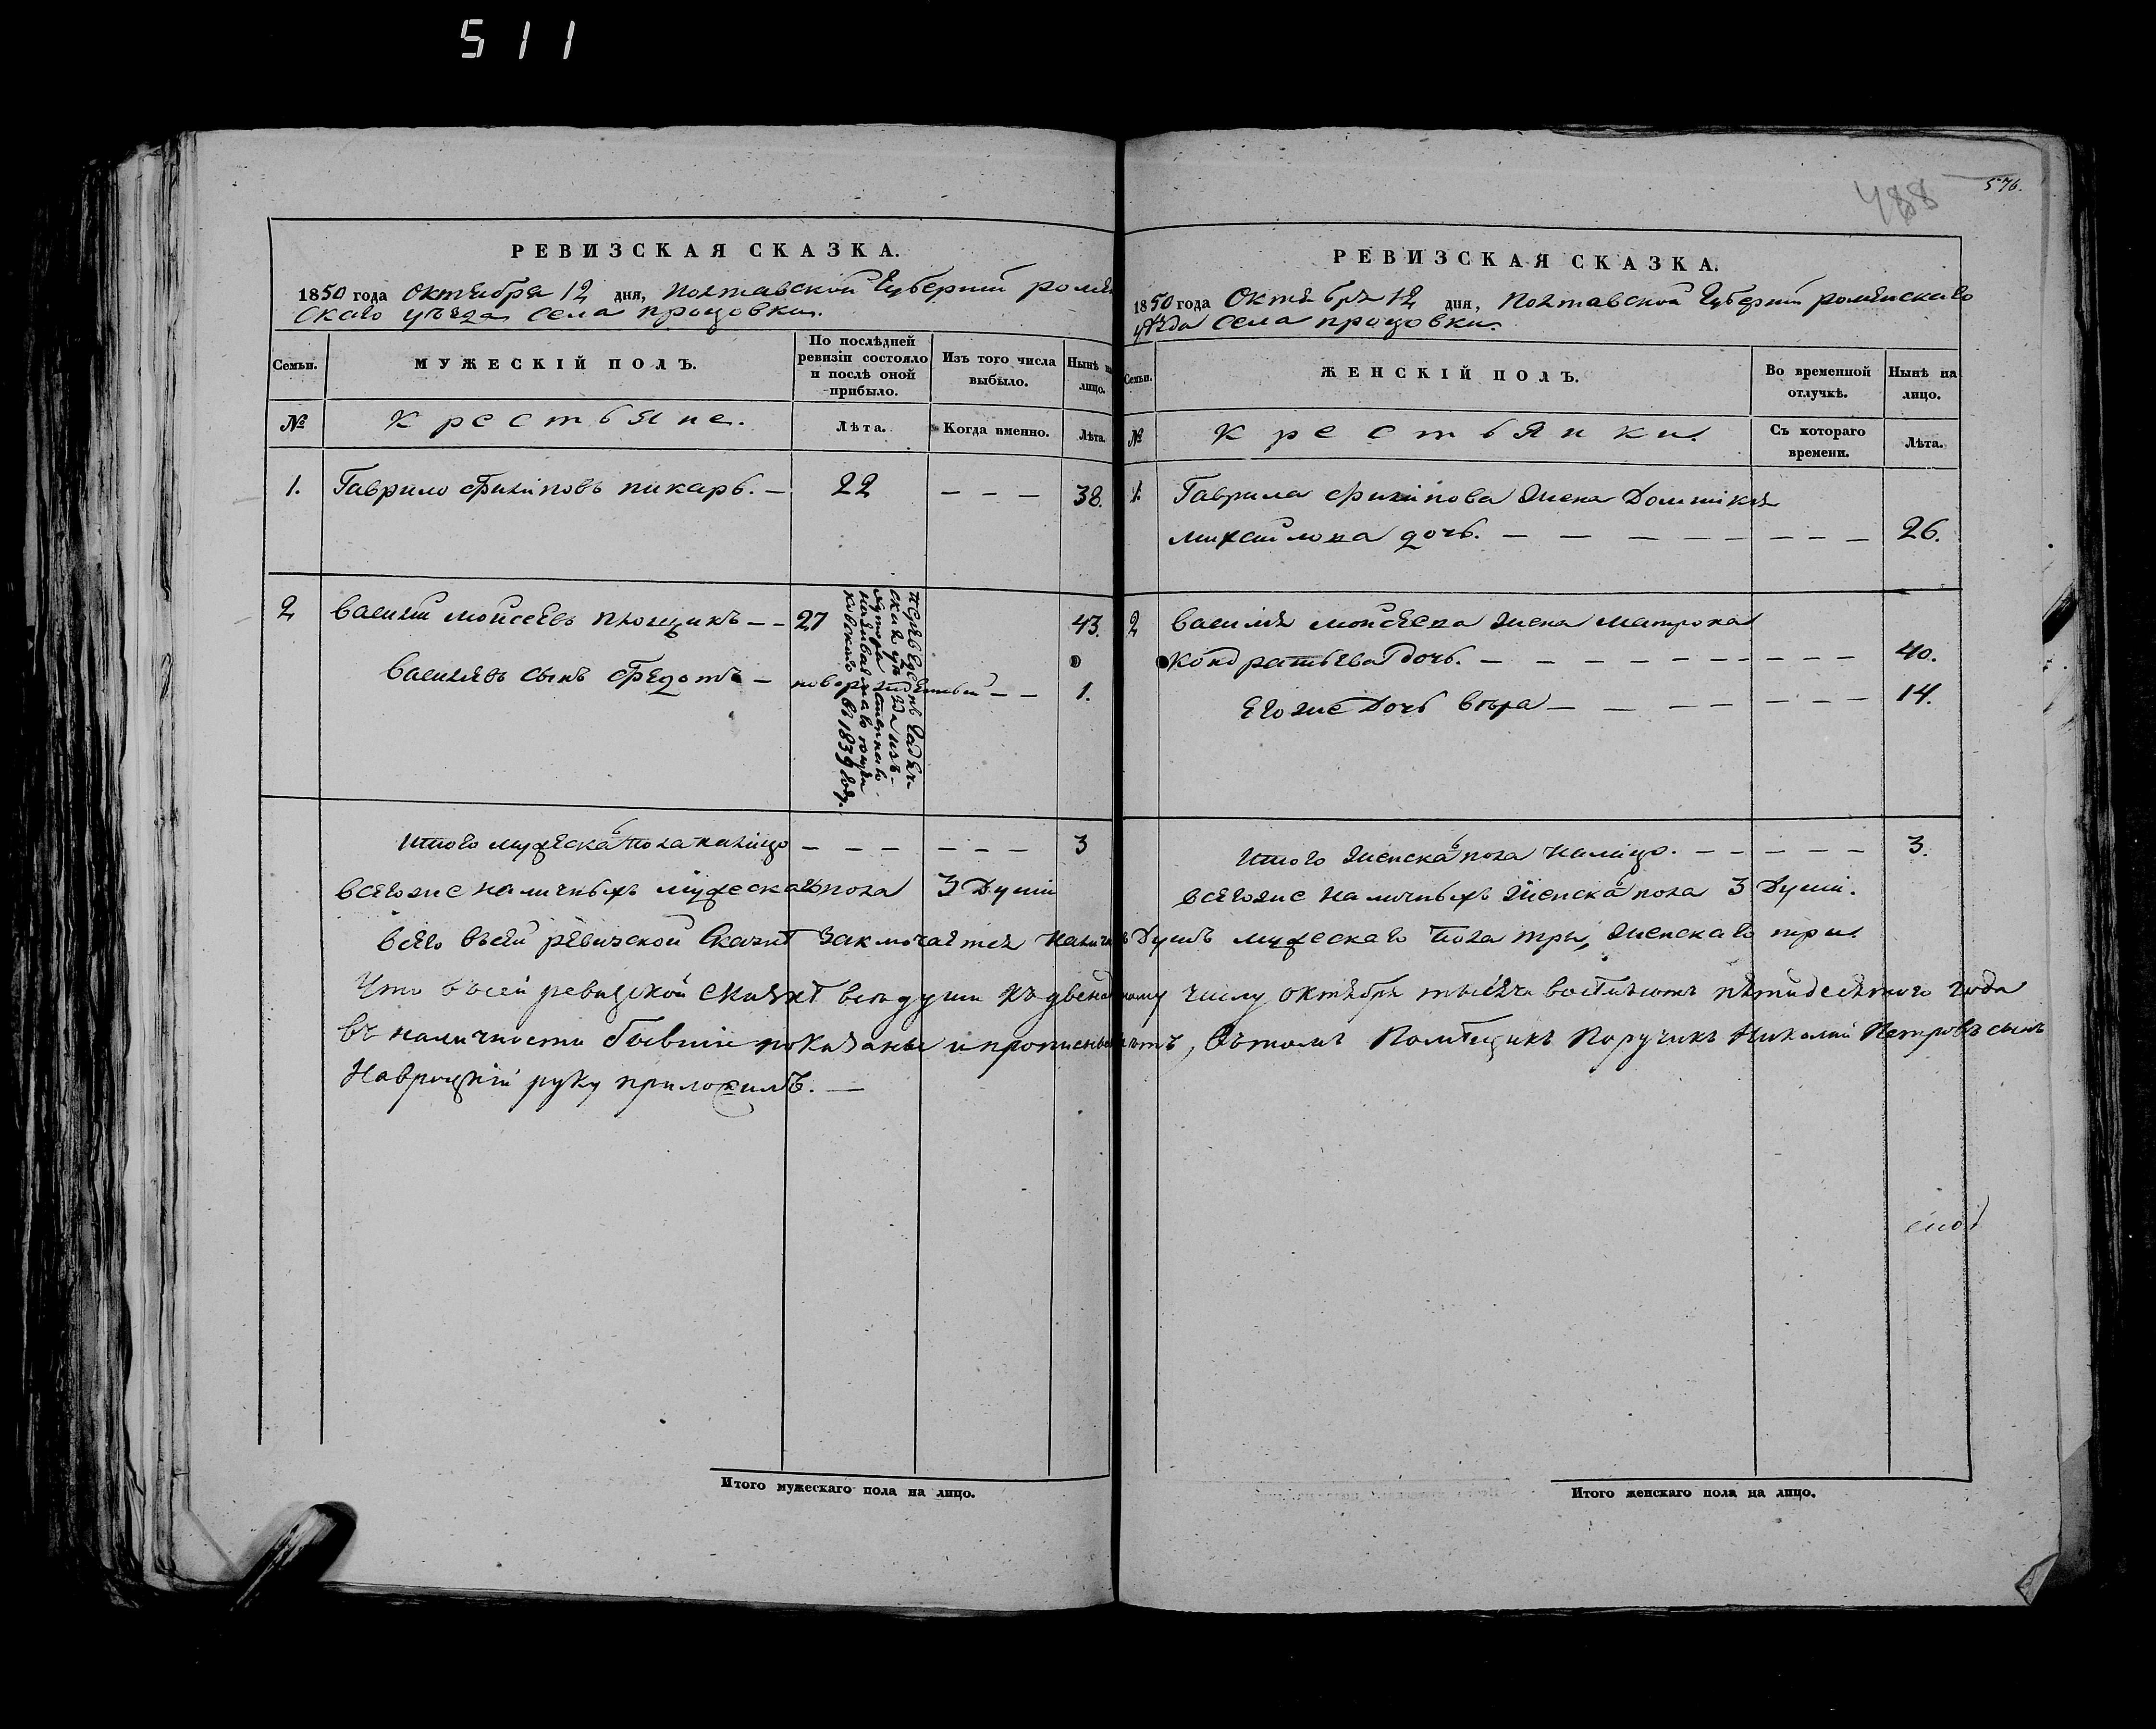 511
488
576.
РЕВИЗСКАЯ СКАЗКА.
1850 года Октября 12 дня, Полтавской Губерніи ромен
скаго уезда села процовки.
Семьи.
МУЖЕСКІЙ ПОЛЪ.
По послѣдней
ревизіи состояло
и послѣ оной
прибыло.
Изъ того числа
выбыло.
Нынѣ на
лицо.
№
Крестьяне.
Лѣта.
Когда именно.
Лѣта.
1. Гаврило Филіповъ пикарь. — 22 — — — 38.
2 Василій Моисеевъ — — 27 43.
Васильевъ сынъ Федотъ — новорожденный — — 1.
въ 1839 году.
Итого мужескаго пола налицо — — — — — — 3
Всего же наличныхъ мужескаго пола 3 Души
РЕВИЗСКАЯ СКАЗКА.
1850 года Октября 12 дня, Полтавской Губерніи роменскаго
уѣзда села процовки.
Семьи.
ЖЕНСКІЙ ПОЛЪ.
Во временной
отлучкѣ.
Нынѣ на
лицо.
№
Крестьянки.
Съ котораго
времени.
Лѣта.
1. Гаврила Филіпова жена Домникія
Михайлова дочь. — — — — — — — — 26.
2 Василія Моисеева жена Матрона
Кондратьева дочь. — — — — — — — — 40.
Его же Дочь Вѣра — — — — — — — 14.
Итого женскаго пола налицо. — — — — — 3.
Всего же наличныхъ женскаго пола 3 Души.
Всего въ сей ревизской Сказкѣ заключается наличныхъ Душъ мужескаго пола три, женскаго три.
Что въ сей ревизской сказкѣ всѣ души къ двенадцатому числу октября тысяча восѣмъсотъ пятидесятого года
въ наличности бывшіе показаны и прописныхъ нѣтъ, въ томъ Помѣщикъ Поручикъ Николай Петровъ сынъ
Навроцкій руку приложилъ. —
Итого мужескаго пола на лицо.
Итого женскаго пола на лицо.